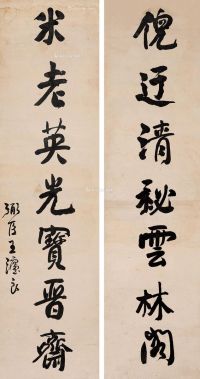 倪迂清秘雲林閣
米老英光寶晉齋
弼臣王澐良